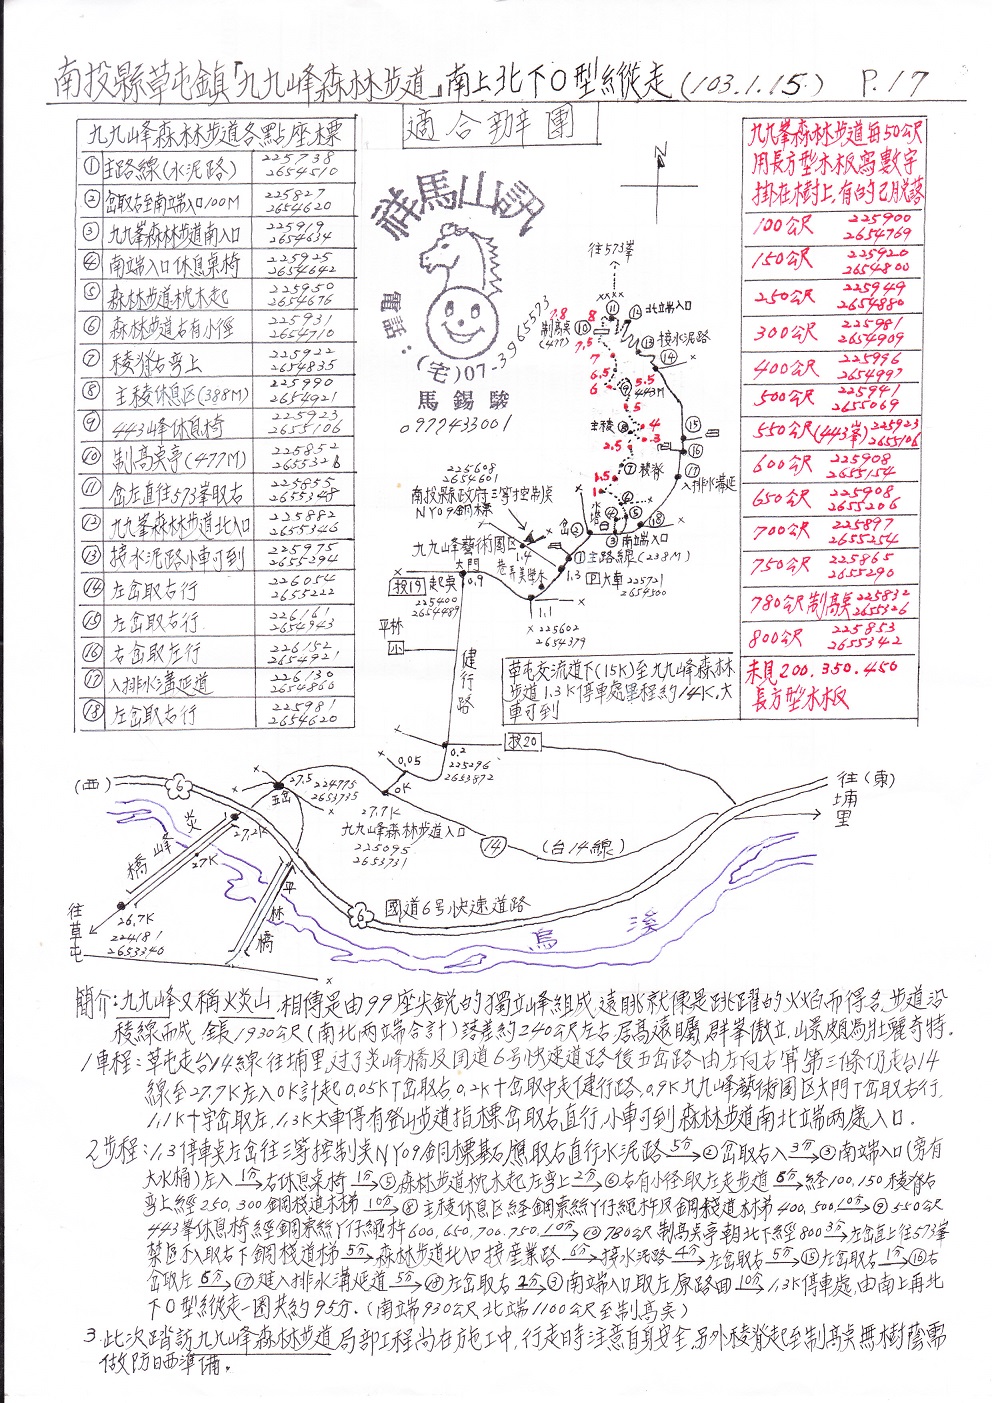 南投縣草屯鎮「九九峰森林步道」南上北下O型縱走(103.1.15.) P.17
適合辦團
九九山峰森林步道各點座標
①主路線(水泥路) 225738 2654510
②岔取右至南端入口100M 225827 2654620
③九九峯森林步道南入口 225919 2654634
④南端入口休息桌椅 225925 2654642
⑤森林步道枕木起 225950 2654676
⑥森林步道右有小徑 225931 2654710
⑦稜脊右彎上 225922 2654835
⑧主稜休息区(388M) 225990 2654921
⑨443峰休息椅 225923 2655106
⑩制高桌亭(477M) 225852 2655326
⑪岔左直往573峯取右 225855 2655348
⑫九九峯森林步道北入口 225882 2655346
⑬接水泥路小車可到 225975 2655294
⑭左岔取右行 226054 2655222
⑮左岔取右行 226161 2654943
⑯右岔取左行 226152 2654921
⑰入排水溝延道 226130 2654860
⑱左岔取右行 225981 2654620
祥馬山訊
電話:(宅)07-3965573
馬錫駿
0972433001
N
九九峯森林步道每50公尺
用長方型木板寫數字
掛在樹上,有的已脫落
100公尺 225900 2654769
150公尺 225920 2654800
250公尺 225949 2654880
300公尺 225981 2654909
400公尺 225996 2654997
500公尺 225941 2655069
550公尺(443峯) 225923 2655106
600公尺 225908 2655154
650公尺 225908 2655206
700公尺 225897 2655254
750公尺 225865 2655290
780公尺制高桌 225832 2655326
800公尺 225853 2655342
未見200,350,450
長方型木板
往573峯
北端入口
制高桌(477)
接水泥路
443M
主稜
稜脊
入排水溝延
水塔
南端入口
主路線(238M)
225608
2654601
南投縣政府三等控制桌
NY09銅標
九九山峰藝術園区
大門
1.4
1.3
大車 225721 2654500
投19 起桌 0.9
225400
2654489
1.1
225602
2654379
平林
健行路
草屯交流道下(15K)至九九峰森林
步道1.3K停車處單程約14K,大
車可到
投20
0.2
225296
2653872
0.05
0K
27.7K
九九山峰森林步道入口
225095
2653731
(西)
6
五岔
27.5 224775
2653735
往(東)
埔里
14 (台14線)
炎峰橋
27.2K
27K
平林橋
往草屯
26.7K
224181
2653340
6 國道6号快速道路
烏溪
簡介:九九峰又稱火炎山,相傳是由99座尖銳的獨立峰組成,遠眺就像是跳躍的火焰而得名,步道沿
稜線而成,全長1930公尺(南北兩端合計)落差約240公尺左右,居高遠矚,群峯傲立,山景頗為壯麗奇特.
1車程:草屯走台14線往埔里,过了炎峰橋及国道6号快速道路後五岔路,由左向右第三條仍走台14
線至27.7K左入0K計起,0.05K丁岔取右,0.2K十岔取中走健行路,0.9K九九峰藝術園区大門丁岔取右行,
1.1K十字岔取左,1.3K大車停有登山步道指標岔取右直行,小車可到森林步道南北端兩處入口.
2步程:1.3停車桌左岔往三等控制桌NY09銅標基石,應取右直行水泥路 5分→②岔取右入 3分→③南端入口(旁有
大水桶)左入 1分→右休息桌椅 1分→⑤森林步道枕木起左彎上 2分→⑥右有小徑取左走步道 8分→經100,150稜脊右
彎上經250,300鋼棧道木梯 10分→⑧主稜休息区經鋼索絲丫仔繩杵及鋼棧道木梯400,500, 10分→⑨550公尺
443峯休息椅經鋼索絲丫仔繩杵600,650,700,750, 10分→⑩780公尺制高桌亭朝北下經800 3分→左岔直上往573峯
禁區不入取右下鋼棧道梯 5分→森林步道北入口接產業路 6分→接水泥路 4分→左岔取右 5分→⑮左岔取右 1分→⑯右
岔取左 8分→⑰進入排水溝延道 5分→⑱左岔取右 2分→③南端入口取左原路回 10分→1.3K停車處,由南上再北
下O型縱走一圈共約95分.(南端930公尺,北端1100公尺至制高桌)
3.此次踏訪九九山峰森林步道局部工程尚在施工中,行走時注意自身安全,另外稜脊起至制高桌無樹蔭需
做防晒準備.